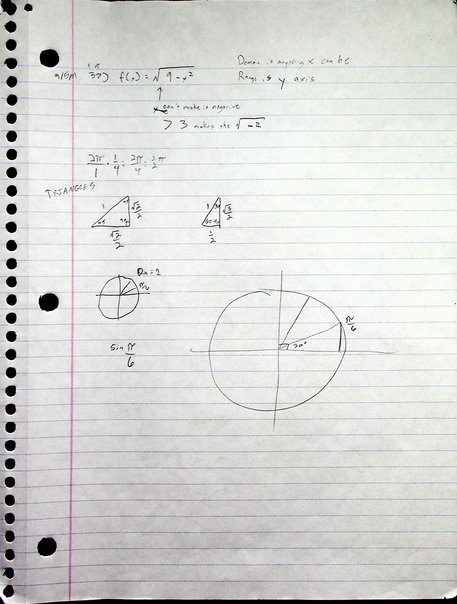 1.5
37) f(x) = √9-x²
Domain is anything x can be
Range is y axis
can't make it negative
> 3 makes the √-#
2π/1 · 1/4 = 2π/4 = 1/2 π
TRIANGLES
1 √2/2
√2/2
1 √3/2
1/2
π/6
Sin π/6
π/6
30°